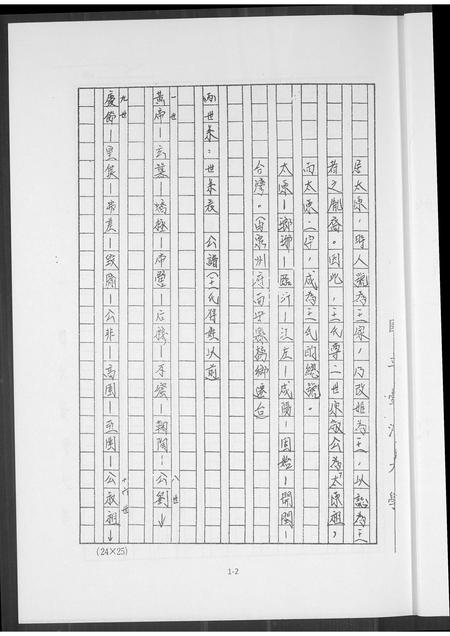 居太原，時人號為王家，乃改姓為王，以誌為王
者之胤裔。因此，王氏尊二世宗敬公為太原祖，
而太原二字，成為王氏的總號。
太原－瑯琊－臨沂－江左－咸陽－固始－開閩－
台灣。(由泉州府南安縣 鄉遷台
兩世系：世系表 公譜(王氏得姓以前
一世 八世
黃帝－玄囂－蟜極－帝嚳－后稷－不窋－鞠陶－公劉↓
九世 十六世
慶節－皇僕－弗差－毀隃－公非－高圉－亞圉－公叔祖↓
(24×25)
1-2
國立臺灣大學